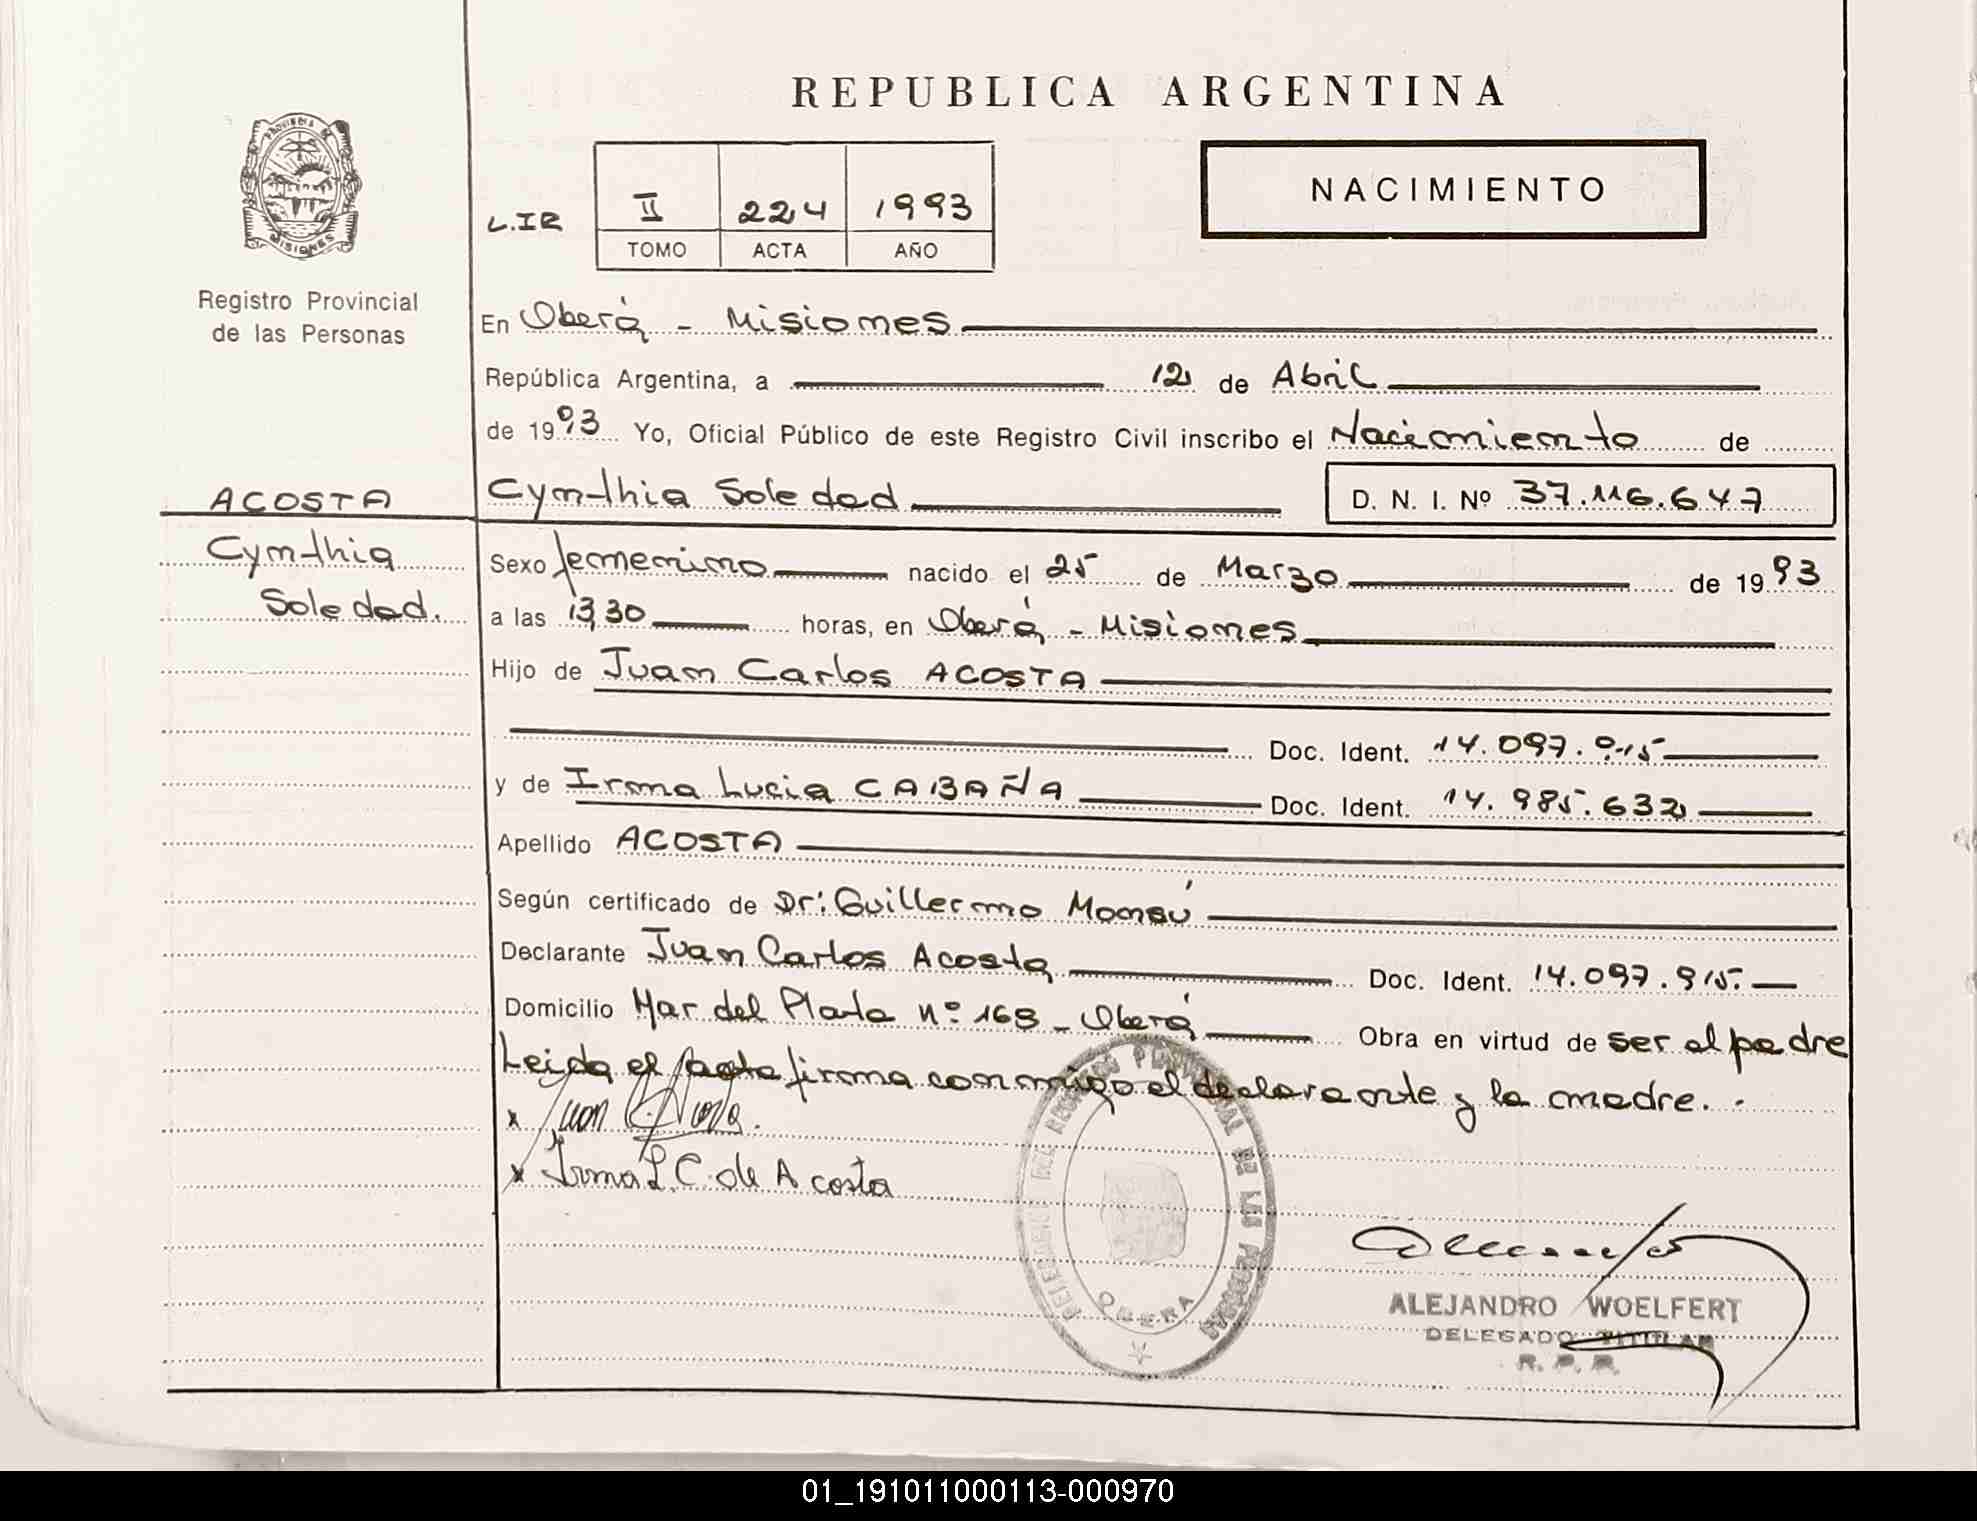 REPUBLICA ARGENTINA
PROVINCIA DE MISIONES
Registro Provincial
de las Personas
L.IR II 224 1993
TOMO ACTA AÑO
NACIMIENTO
En Oberá - Misiones
República Argentina, a 12 de Abril
de 1993 Yo, Oficial Público de este Registro Civil inscribo el Nacimiento de
ACOSTA
Cynthia
Soledad.
Cynthia Soledad D. N. I. Nº 37.116.647
Sexo femenino nacido el 25 de Marzo de 1993
a las 13,30 horas, en Oberá - Misiones
Hijo de Juan Carlos ACOSTA
Doc. Ident. 14.097.915
y de Irma Lucia CABAÑA Doc. Ident. 14.985.632
Apellido ACOSTA
Según certificado de Dr: Guillermo Monsú
Declarante Juan Carlos Acosta Doc. Ident. 14.097.915.
Domicilio Mar del Plata nº 168 - Oberá Obra en virtud de ser el padre
Leida el acta firma conmigo el declarante y la madre. -
x Juan C. Acosta.
x Irma L. C. de Acosta
DELEGACION DEL REGISTRO PROVINCIAL DE LAS PERSONAS
OBERA
ALEJANDRO WOELFERT
DELEGADO TITULAR
R. P. P.
01_191011000113-000970